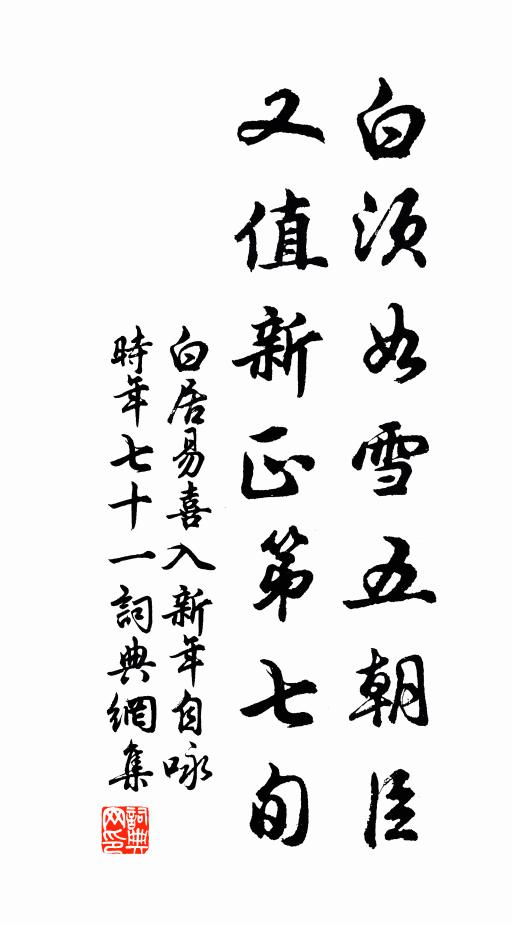 白须如雪五朝臣
又值新正第七旬
白居易喜入新年自咏
時年七十一詞典網集
詞典
网印